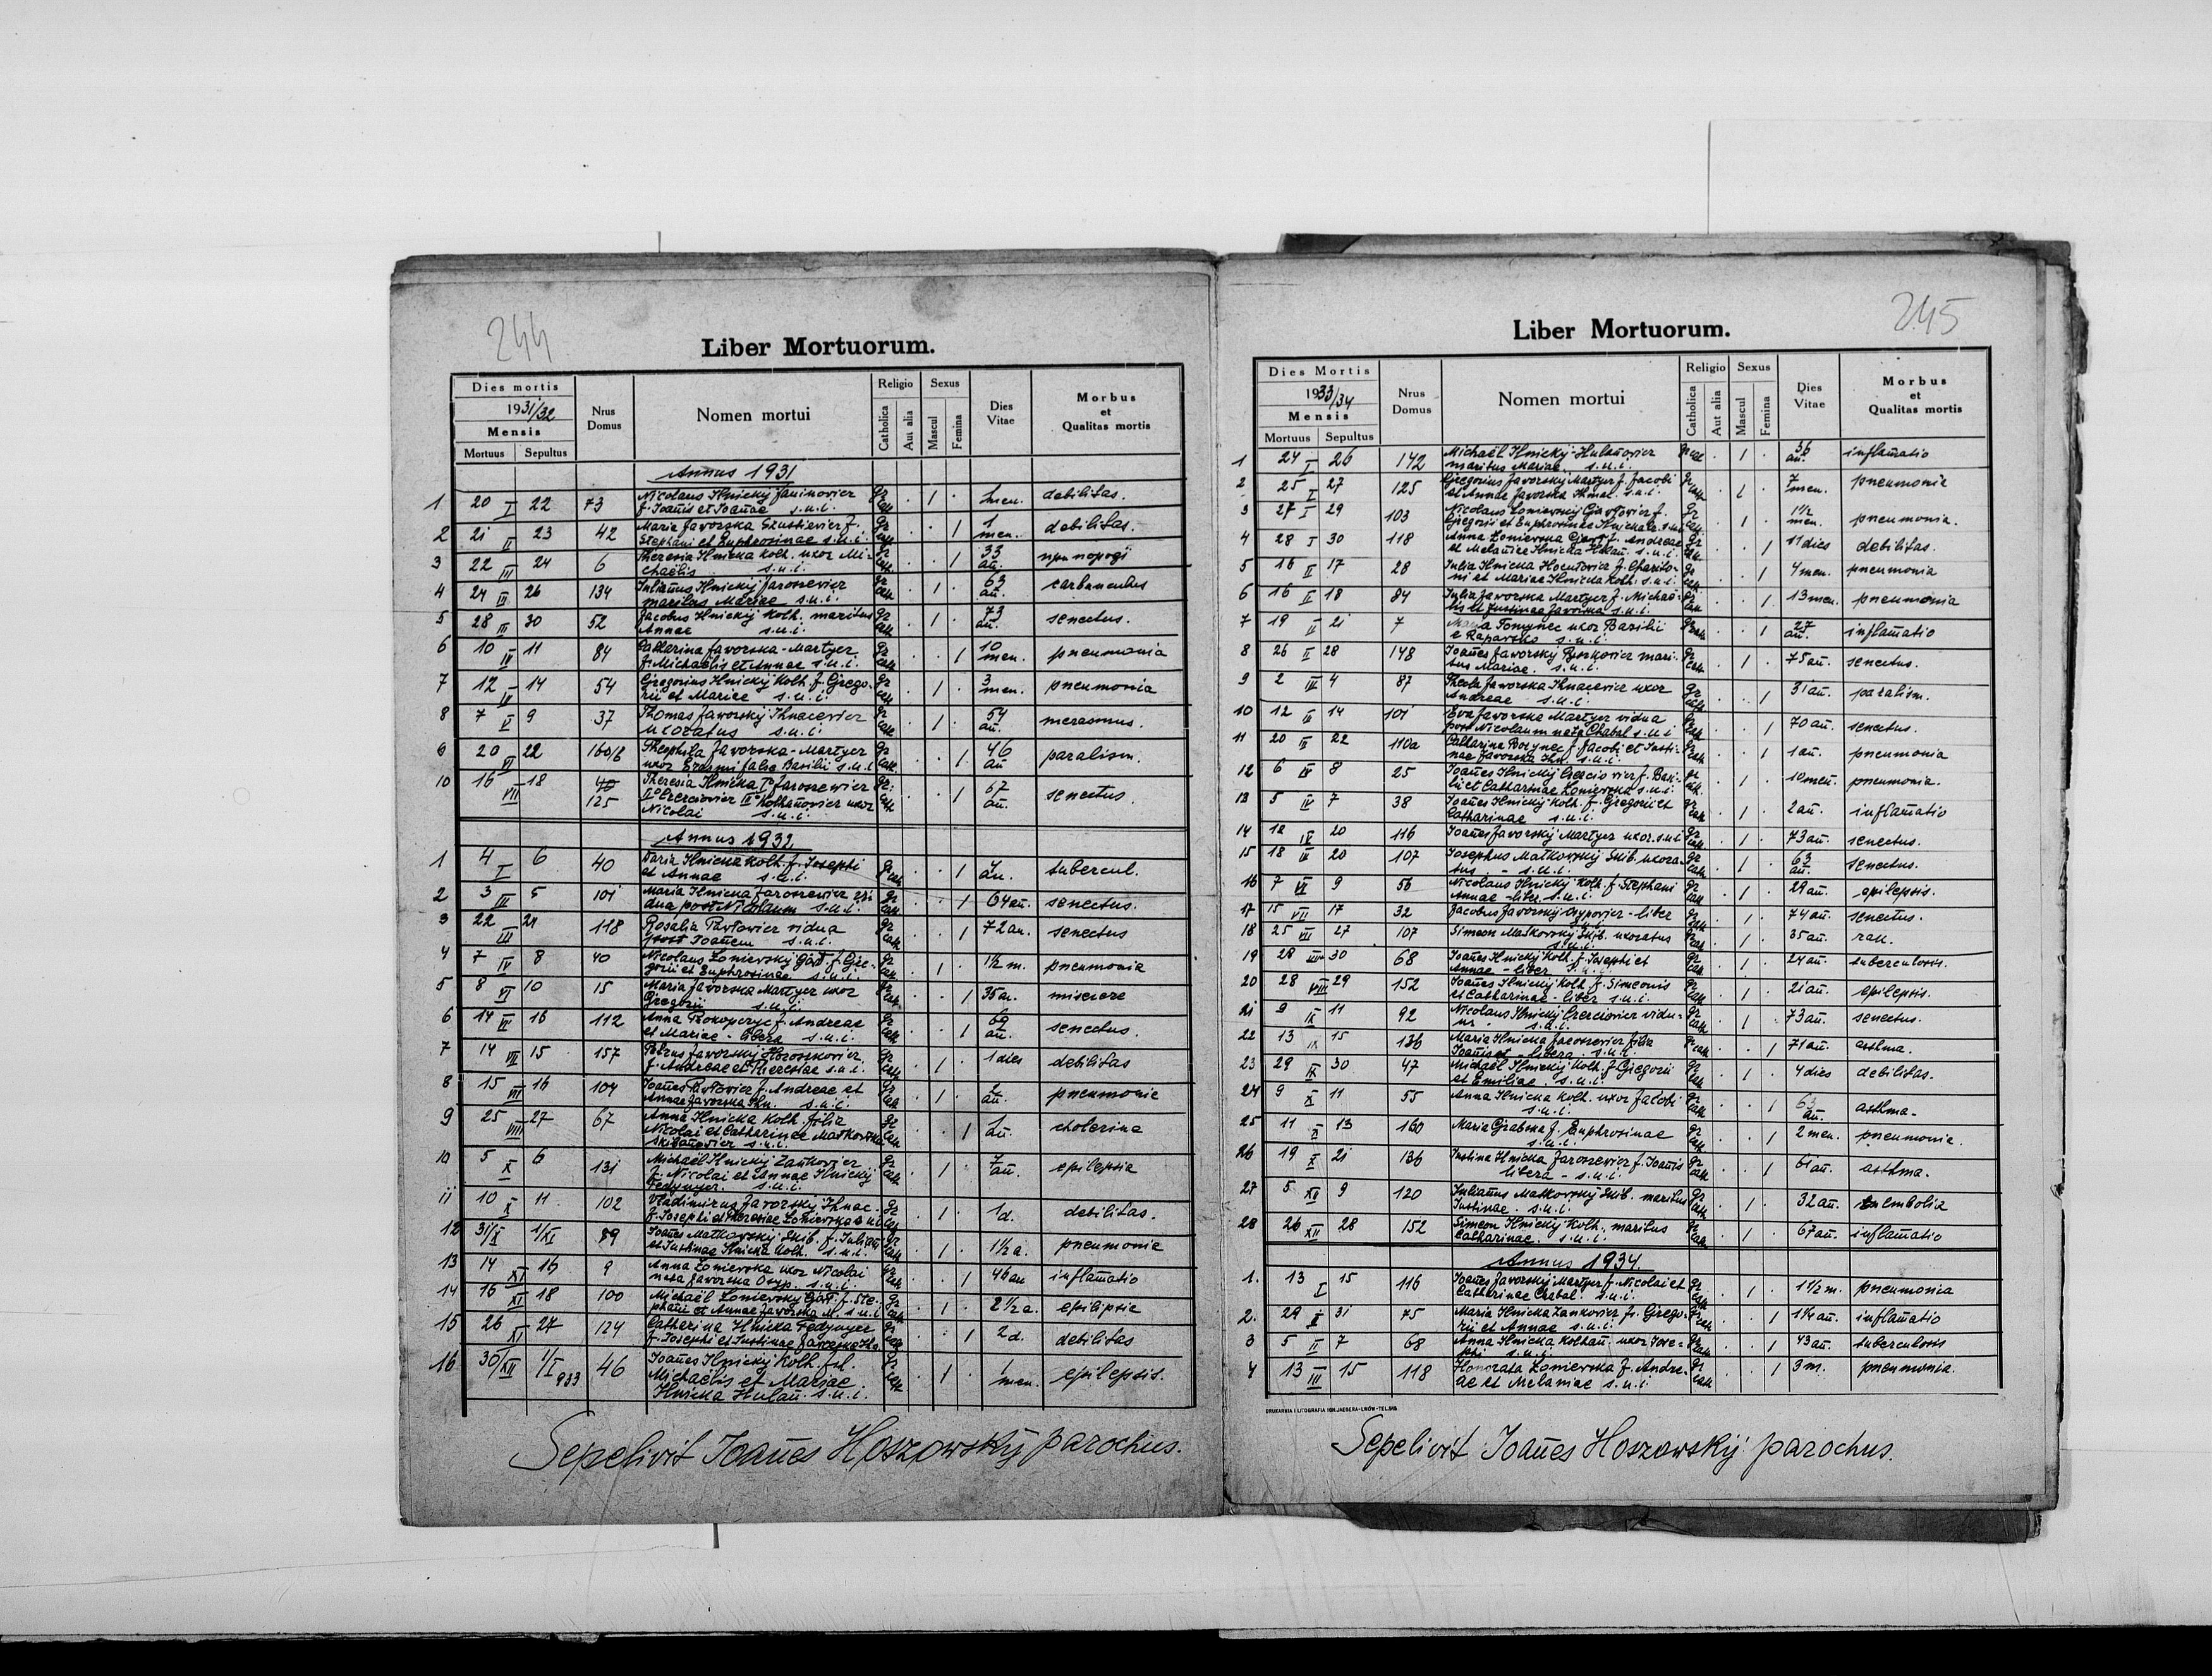 244
Liber Mortuorum.
Dies mortis
1931/32
Mensis
Mortuus Sepultus
Nrus Domus
Nomen mortui
Religio
Catholica Aut alia
Sexus
Mascul Femina
Dies Vitae
Morbus et Qualitas mortis
Annus 1931
1 20 I 22 73 Nicolaus Ilnickij Janikovier Gr 1 1 men. debilitas.
f. Joanis et Joanae s.u.i. cath
2 21 II 23 42 Maria Javorska f. Gr 1 1 men. debilitas.
Stephani et Euphrosinae s.u.i.
3 22 III 24 6 Theresia Ilnicka Kolh. uxor Mi- Gr 1 33 an.
chaëlis s.u.i. cath
4 24 III 26 134 Julianus Ilnickij Jarossevier Gr 1 63 an. carbunculus
maritus Mariae s.u.i. cath
5 28 III 30 52 Jacobus Ilnickij Kolh. maritus Gr 1 73 an. senectus.
Annae s.u.i. cath
6 10 IV 11 84 Catharina Javorska-Martyer Gr 1 10 men. pneumonia
f. Michaëlis et Annae s.u.i. cath
7 12 IV 14 54 Gregorius Ilnickij Kolh. f. Grego- Gr 1 3 men. pneumonia
rii et Mariae s.u.i. cath
8 7 V 9 37 Thomas Javorskij Ihnacevier Gr 1 54 an. merasmus.
uxoratus s.u.i. cath
9 20 VI 22 160/b Theophila Javorska-Martyer Gr 1 46 an paralism.
uxor Erasmi falso Basilii s.u.i. cath
10 16 VII 18 40 125 Theresia Ilnicka I° Jarossewier Gr. 1 67 an. senectus.
II° Czerciovier III° Kolhanovier uxor cath
Nicolai s.u.i.
Annus 1932
1 4 I 6 40 Daria Ilnicka Kolh. f. Josephi Gr 1 an. tubercul.
et Annae s.u.i. cath
2 3 III 5 101 Maria Ilnicka Jarossewier vi- Gr 1 64 an. senectus.
dua post Nicolaum s.u.i. cath
3 22 III 24 118 Rosalia Pavlovier vidua Gr 1 72 an. senectus
post Joanem s.u.i. cath
4 7 IV 8 40 Nicolaus Łonievskij f. Gre- Gr 1 1½ m. pneumonia
gorii et Euphrosinae s.u.i. cath
5 8 VI 10 15 Maria Javorska Martyer uxor Gr 1 35 an. miserere
Gregorii s.u.i. cath
6 14 VI 16 112 Anna Prokopczyc f. Andreae Gr 1 69 an. senectus.
et Mariae - libera s.u.i. cath
7 14 VII 15 157 Petrus Javorskij Gr 1 1 dies debilitas
f. Andreae et Theresiae s.u.i. cath
8 15 VIII 16 104 Joanes Pavlovier f. Andreae et Gr 1 2 an. pneumonie
Annae Javorska Ihn. s.u.i. cath
9 25 VIII 27 67 Anna Ilnicka Kolh. filia Gr 1 1 an. cholerina
Nicolai et Catharinae Matkowska cath
Skibanovier s.u.i.
10 5 X 6 131 Michaël Ilnickij Zankovier Gr 1 7 an. epilepsia
f. Nicolai et Annae Ilnickij cath
Fedynyer. s.u.i.
11 10 X 11 102 Vladimirus Javorskij Ihnac. Gr 1 1 d. debilitas.
f. Josephi et Theresiae Łonievska s.u.i. cath
12 31/X 1/XI 89 Joanes Matkovskij Skib. f. Julian Gr 1 1½ a. pneumonia
et Justinae Ilnicka Kolh. s.u.i. cath
13 14 XI 16 9 Anna Łonievska uxor Nicolai Gr 1 46 an inflamatio
nata Javorska Osyp. s.u.i. cath
14 16 XI 18 100 Michaël Łonievskij f. Ste- Gr 1 2½ a. epilipsia
phani et Annae Javorska M. s.u.i. cath
15 26 XI 27 124 Catharina Ilnicka Fedynyer Gr 1 2 d. debilitas
f. Josephi et Justinae Javorska cath
16 30/XII 1/I 933 46 Joanes Ilnickij Kolh. fil. Gr 1 1 men. epilepsis.
Michaëlis et Mariae cath
Ilnicka Hulan. s.u.i.
Sepelivit Joanes Hoszowskyj parochus.
245
Liber Mortuorum.
Dies Mortis
1933/34
Mensis
Mortuus Sepultus
Nrus Domus
Nomen mortui
Religio
Catholica Aut alia
Sexus
Mascul Femina
Dies Vitae
Morbus et Qualitas mortis
1 24 I 26 142 Michaël Ilnickij-Hulanovier Gr cat 1 56 an. inflamatio
maritus Mariae s.u.i.
2 25 I 27 125 Gregorius Javorskij Martyer f. Jacobi Gr 1 7 men. pneumonia
et Annae Javorska Ihnac. s.u.i. cath
3 27 I 29 103 Nicolaus Łonievskij f. Gr 1 1½ men. pneumonia.
Gregorii et Euphrosinae Ilnicka s.u.i. cath
4 28 I 30 118 Anna Łonievska f. Andreae Gr 1 11 dies debilitas.
et Melaniae Ilnicka Hulan. s.u.i. cath
5 16 II 17 28 Julia Ilnicka f. Charito- Gr 1 4 men. pneumonia
ni et Mariae Ilnicka Kolh. s.u.i. cath
6 16 II 18 84 Julia Javorska Martyer f. Michaë- Gr 1 13 men. pneumonia
lis et Justinae Javorska s.u.i. cath
7 19 II 21 7 Maria Tomynec uxor Basilii Gr cath 1 27 an. inflamatio
e Rapavsko s.u.i.
8 26 II 28 148 Joanes Javorskij mari- Gr 1 75 an. senectus.
tus Mariae. s.u.i. cath
9 2 III 4 87 Thecla Javorska Ihnacevier uxor Gr 1 31 an. paralism.
Andreae s.u.i. cath
10 12 III 14 101 Eva Javorska Martyer vidua Gr 1 70 an. senectus.
post Nicolaum nata Chabal s.u.i. cath
11 20 III 22 110a Catharina Borynec f. Jacobi et Justi- Gr 1 1 an. pneumonia
nae Javorska Ihn. s.u.i. cath
12 6 IV 8 25 Joanes Ilnickij f. Basi- Gr 1 10 men. pneumonia.
lii et Catharinae Łonievska s.u.i. cath
13 5 IV 7 38 Joanes Ilnickij Kolh. f. Gregorii et Gr 1 2 an. inflamatio
Catharinae s.u.i. cath
14 18 IV 20 116 Joanes Javorskij Martyer uxor. s.u.i. Gr cath 1 73 an. senectus.
15 18 IV 20 107 Josephus Matkovskij Skib. uxora- Gr 1 63 an. senectus.
tus. - s.u.i. cath
16 7 VI 9 56 Nicolaus Ilnickij Kolh. f. Stephani Gr 1 29 an. epilepsis.
Annae - liber s.u.i. cath
17 15 VII 17 32 Jacobus Javorskij Osypovier - liber Gr cath 1 74 an. senectus.
18 25 VIII 27 107 Simeon Matkovskij Skib. uxoratus Gr cath 1 35 an. rak.
s.u.i.
19 28 VIII 30 68 Joanes Ilnickij Kolh. f. Josephi et Gr 1 24 an. tuberculosis.
Annae - liber s.u.i. cath
20 28 VIII 29 152 Joanes Ilnickij Kolh f. Simeonis Gr 1 21 an. epilepsis.
et Catharinae - liber s.u.i. cath
21 9 IX 11 92 Nicolaus Ilnickij Czerciovier vidu- Gr 1 73 an. senectus.
us. s.u.i. cath
22 13 IX 15 136 Maria Ilnicka Jarossevier filia Gr cath 1 71 an. asthma.
Joanis et - libera. s.u.i.
23 29 IX 30 47 Michaël Ilnickij Kolh. f. Gregorii Gr 1 4 dies debilitas.
et Emiliae. s.u.i. cath
24 9 X 11 55 Anna Ilnicka Kolh. uxor Jacobi Gr 1 63 an. asthma-
s.u.i. cath
25 11 X 13 160 Maria Grabska f. Euphrosinae Gr 1 2 men. pneumonia.
s.u.i. cath
26 19 X 21 136 Justina Ilnicka Jarossevier f. Joanis Gr 1 61 an. asthma.
libera - s.u.i. cath
27 5 XI 9 120 Julianus Matkovskij Skib. maritus Gr 1 32 an. embolia
Justinae. s.u.i. cath
28 26 XII 28 152 Simeon Ilnickij Kolh. maritus Gr 1 67 an. inflamatio
Catharinae. s.u.i. cath
Annus 1934.
1. 13 I 15 116 Joanes Javorskij Martyer f. Nicolai et Gr 1 1½ m. pneumonia
Catharinae Chabal. s.u.i. cath
2. 29 I 31 75 Maria Ilnicka Zankovier f. Grego- Gr 1 1¼ an. inflamatio
rii et Annae s.u.i. cath
3 5 II 7 68 Anna Ilnicka Kolhan. uxor Jose- Gr 1 43 an. tuberculosis
phi s.u.i. cath
4 13 III 15 118 Honorata Łonievska f. Andre- Gr 1 3 m. pneumonia.
ae et Melaniae s.u.i. cath
DRUKARNIA I LITOGRAFIA IGN. JAEGERA-LWÓW-TEL.
Sepelivit Joanes Hoszowskyj parochus.